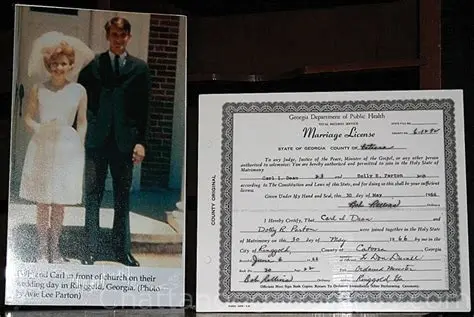 Dolly and Carl in front of church on their
wedding day in Ringgold, Georgia. (Photo
by Avie Lee Parton)
Georgia Department of Public Health
VITAL RECORDS SERVICE
Marriage License
STATE OF GEORGIA COUNTY OF Catoosa
To any Judge, Justice of the Peace, Minister of the Gospel, or any other person
authorized to solemnize: You are hereby authorized and permitted to join in the Holy State of
Matrimony
Carl L Dean and Dolly R. Parton
according to The Constitution and Laws of this State, and for doing so this shall be your sufficient
license.
Given Under My Hand and Seal, this 30 day May 1966
Ordinary
I Hereby Certify, That Carl L Dean and
Dolly R Parton were joined together in the Holy State of
Matrimony on the 30 day of May 1966 by me in
City of Ringgold County of Catoosa
Ordained Minister
Ringgold Ga
COUNTY ORIGINAL